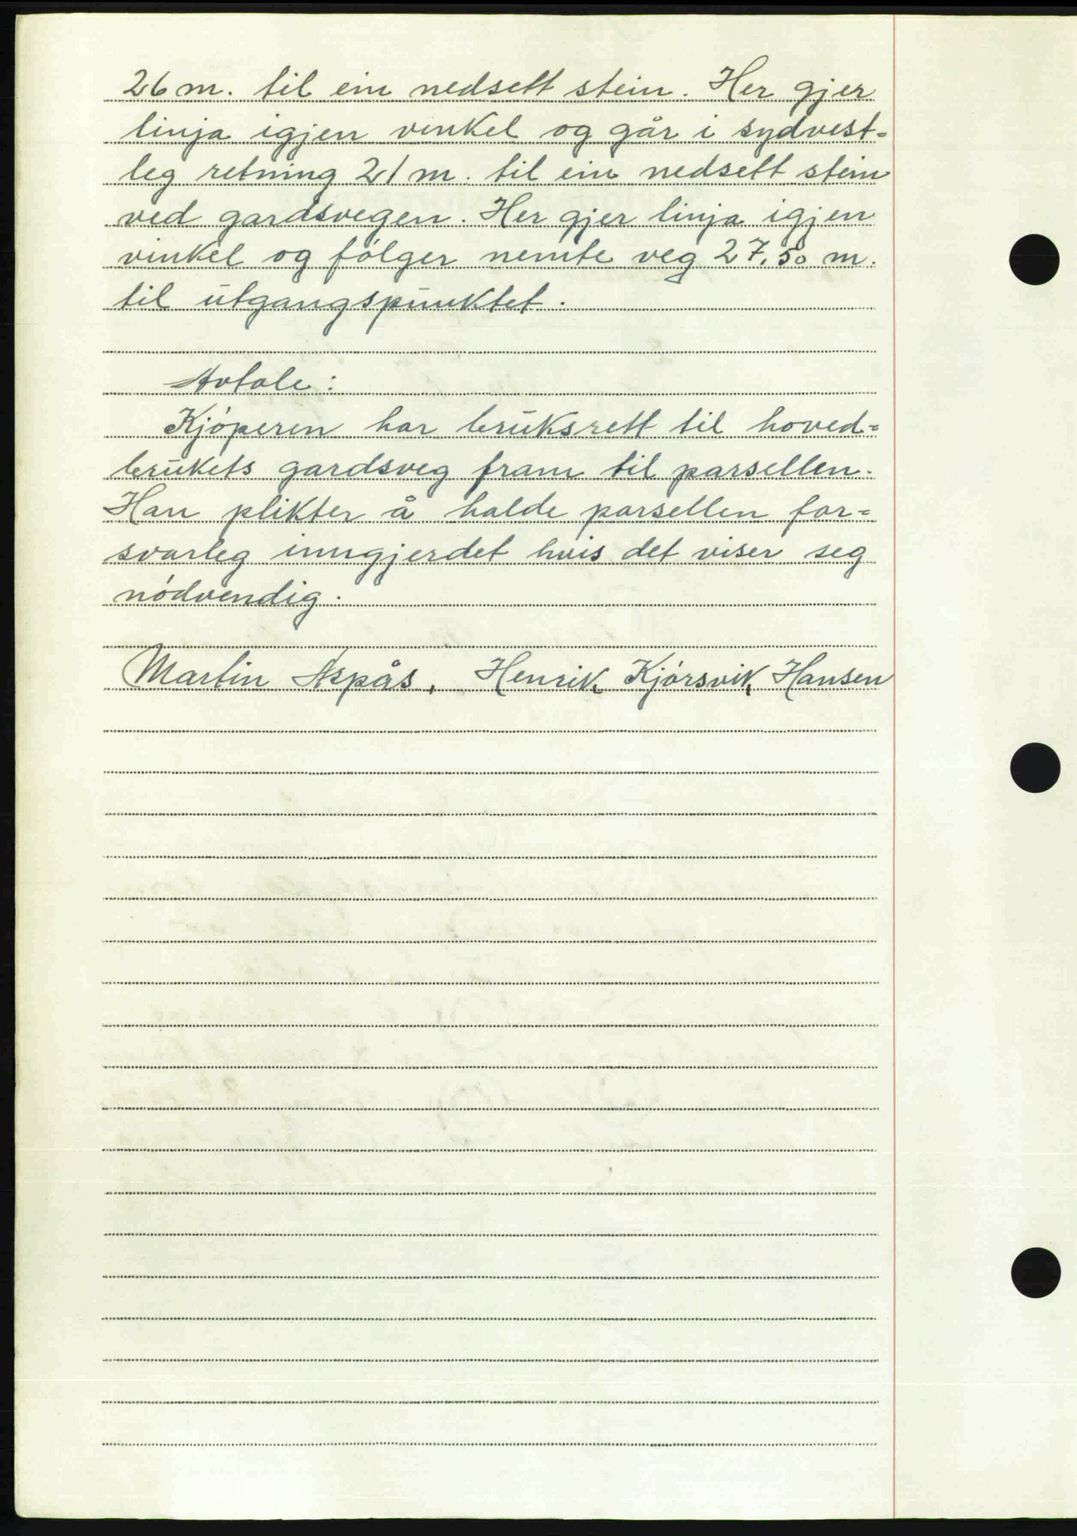 26 m. til ein nedsett stein. Her gjer
linja igjen vinkel og går i sydvest=
leg retning 21 m. til ein nedsett stein
ved gardsvegen. Her gjer linja igjen
vinkel og følger nemte veg 27,50 m.
til utgangspunktet.
Avtale:
Kjøperen har bruksrett til hoved=
brukets gardsveg fram til parsellen.
Han plikter å halde parsellen for=
svarleg inngjerdet hvis det viser seg
nødvendig.
Martin Aspås, Henrik Kjørsvik, Hansen